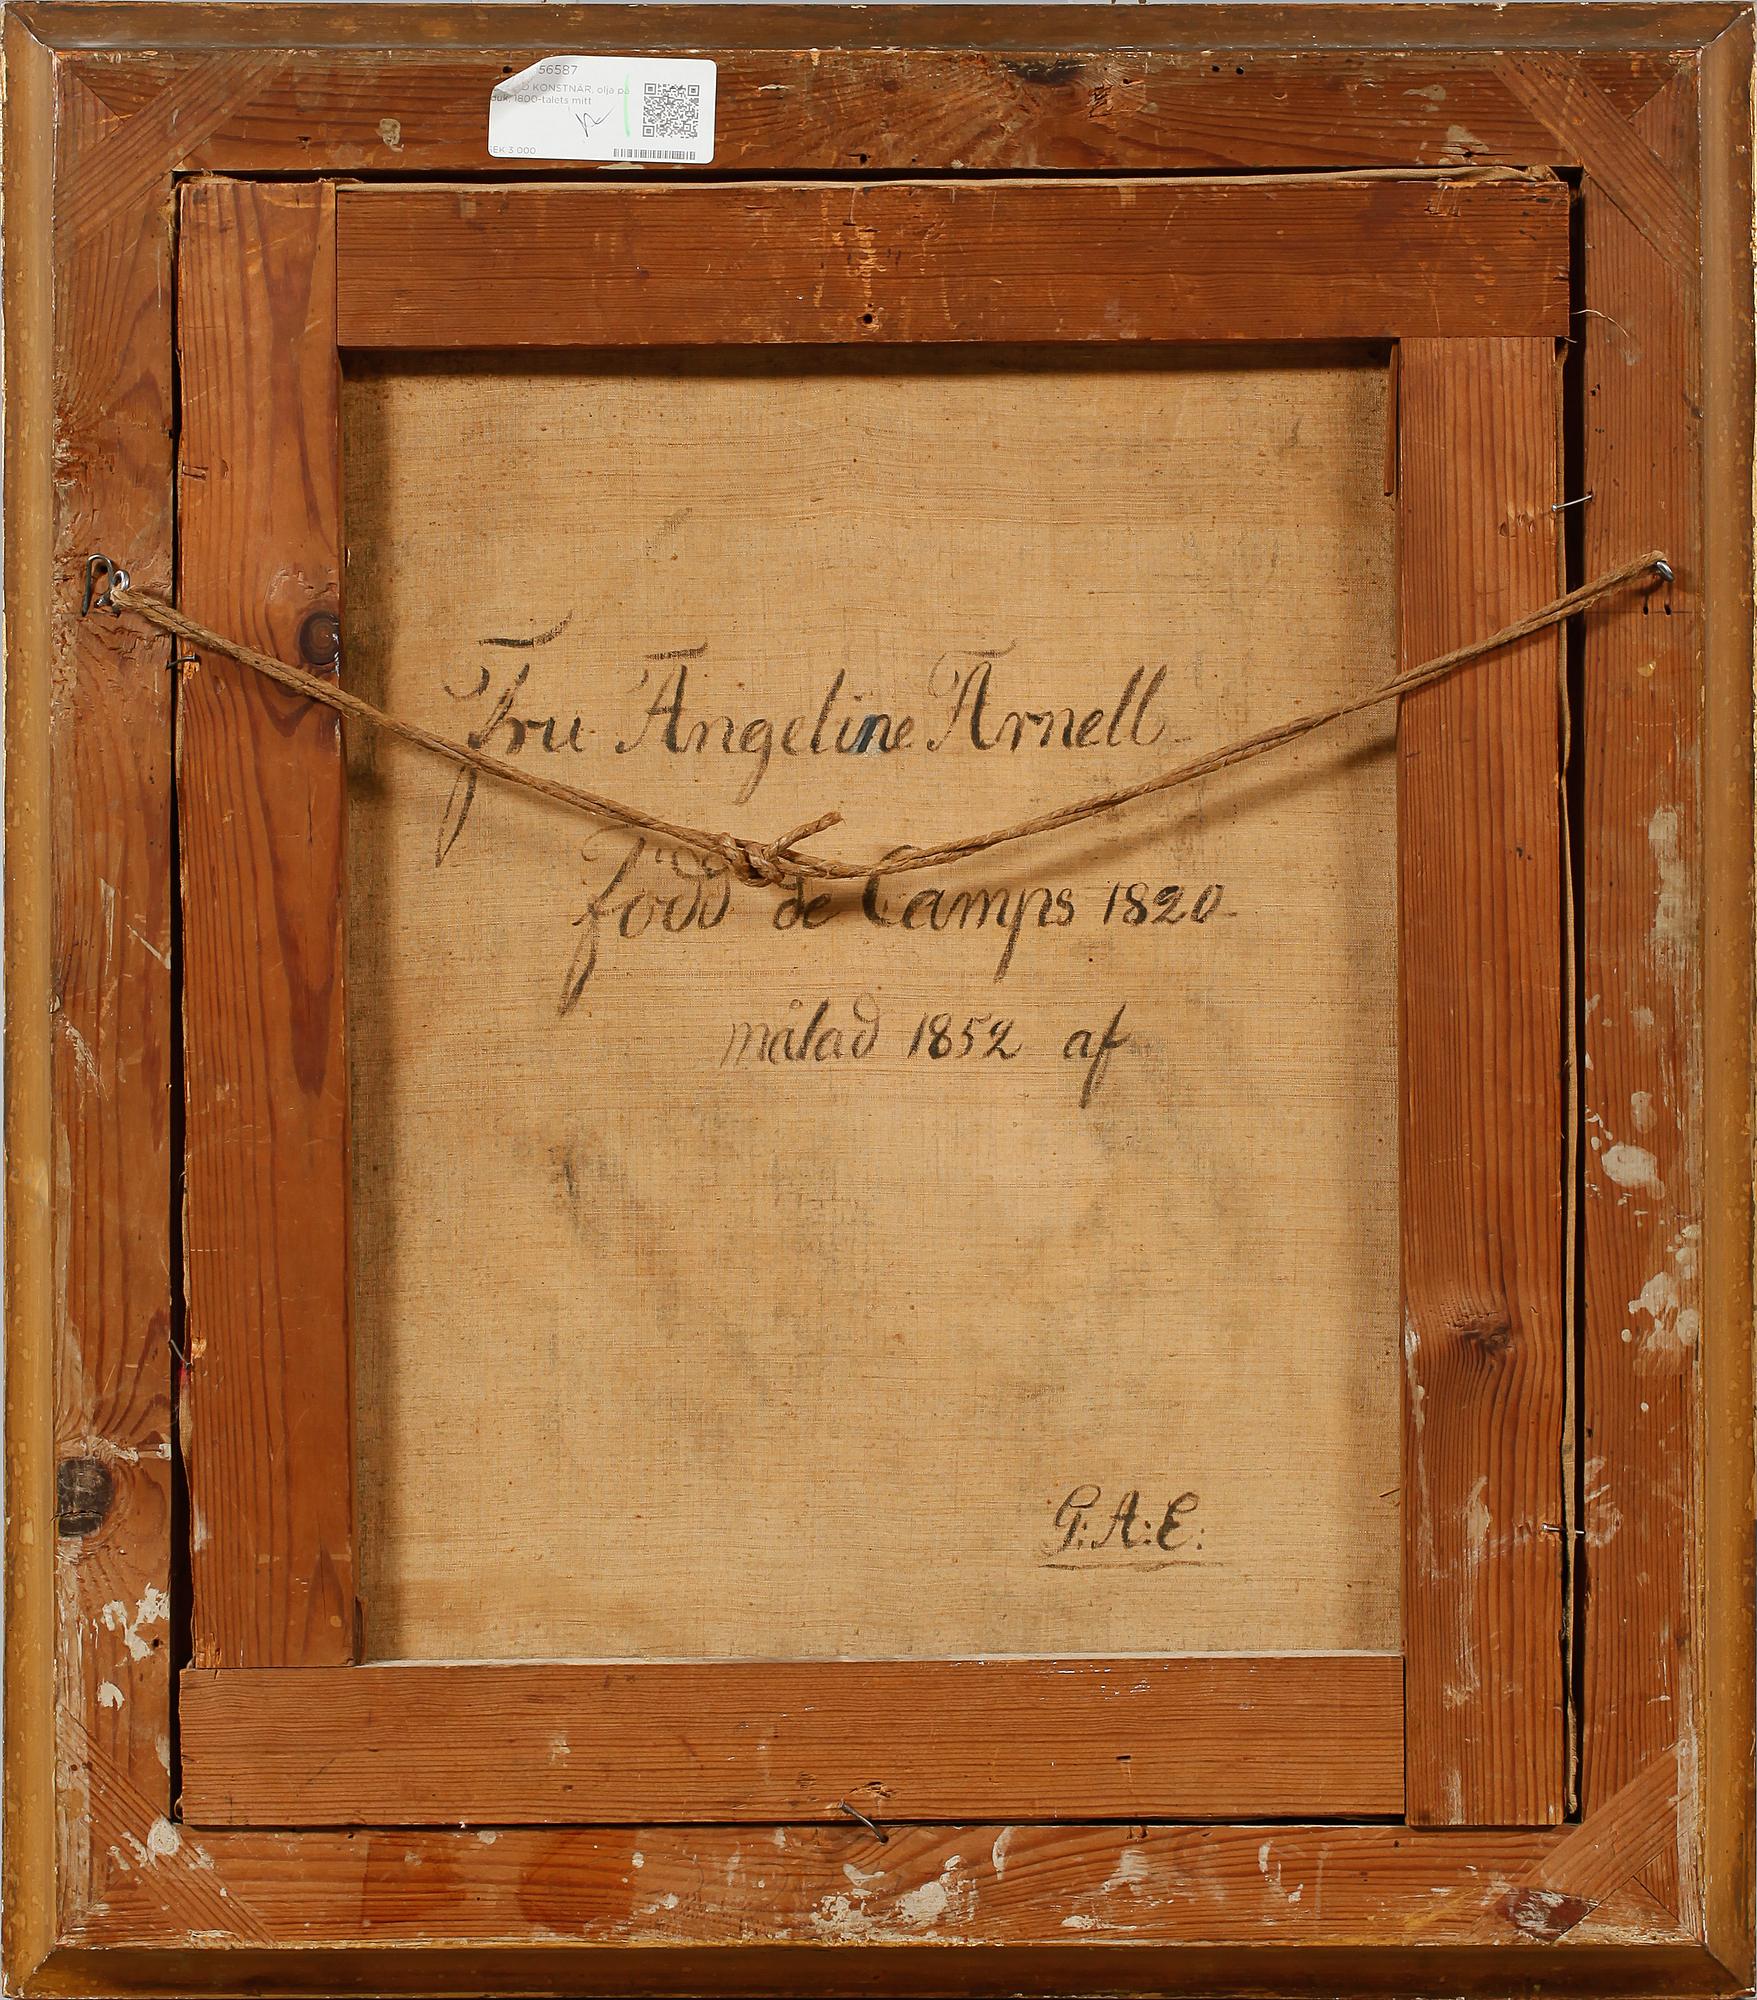 56587
KONSTNÄR, olja på
duk, 1800-talets mitt
SEK 3 000
Fru Angeline Arnell
född de Camps 1820
målad 1852 af
G: A: E: